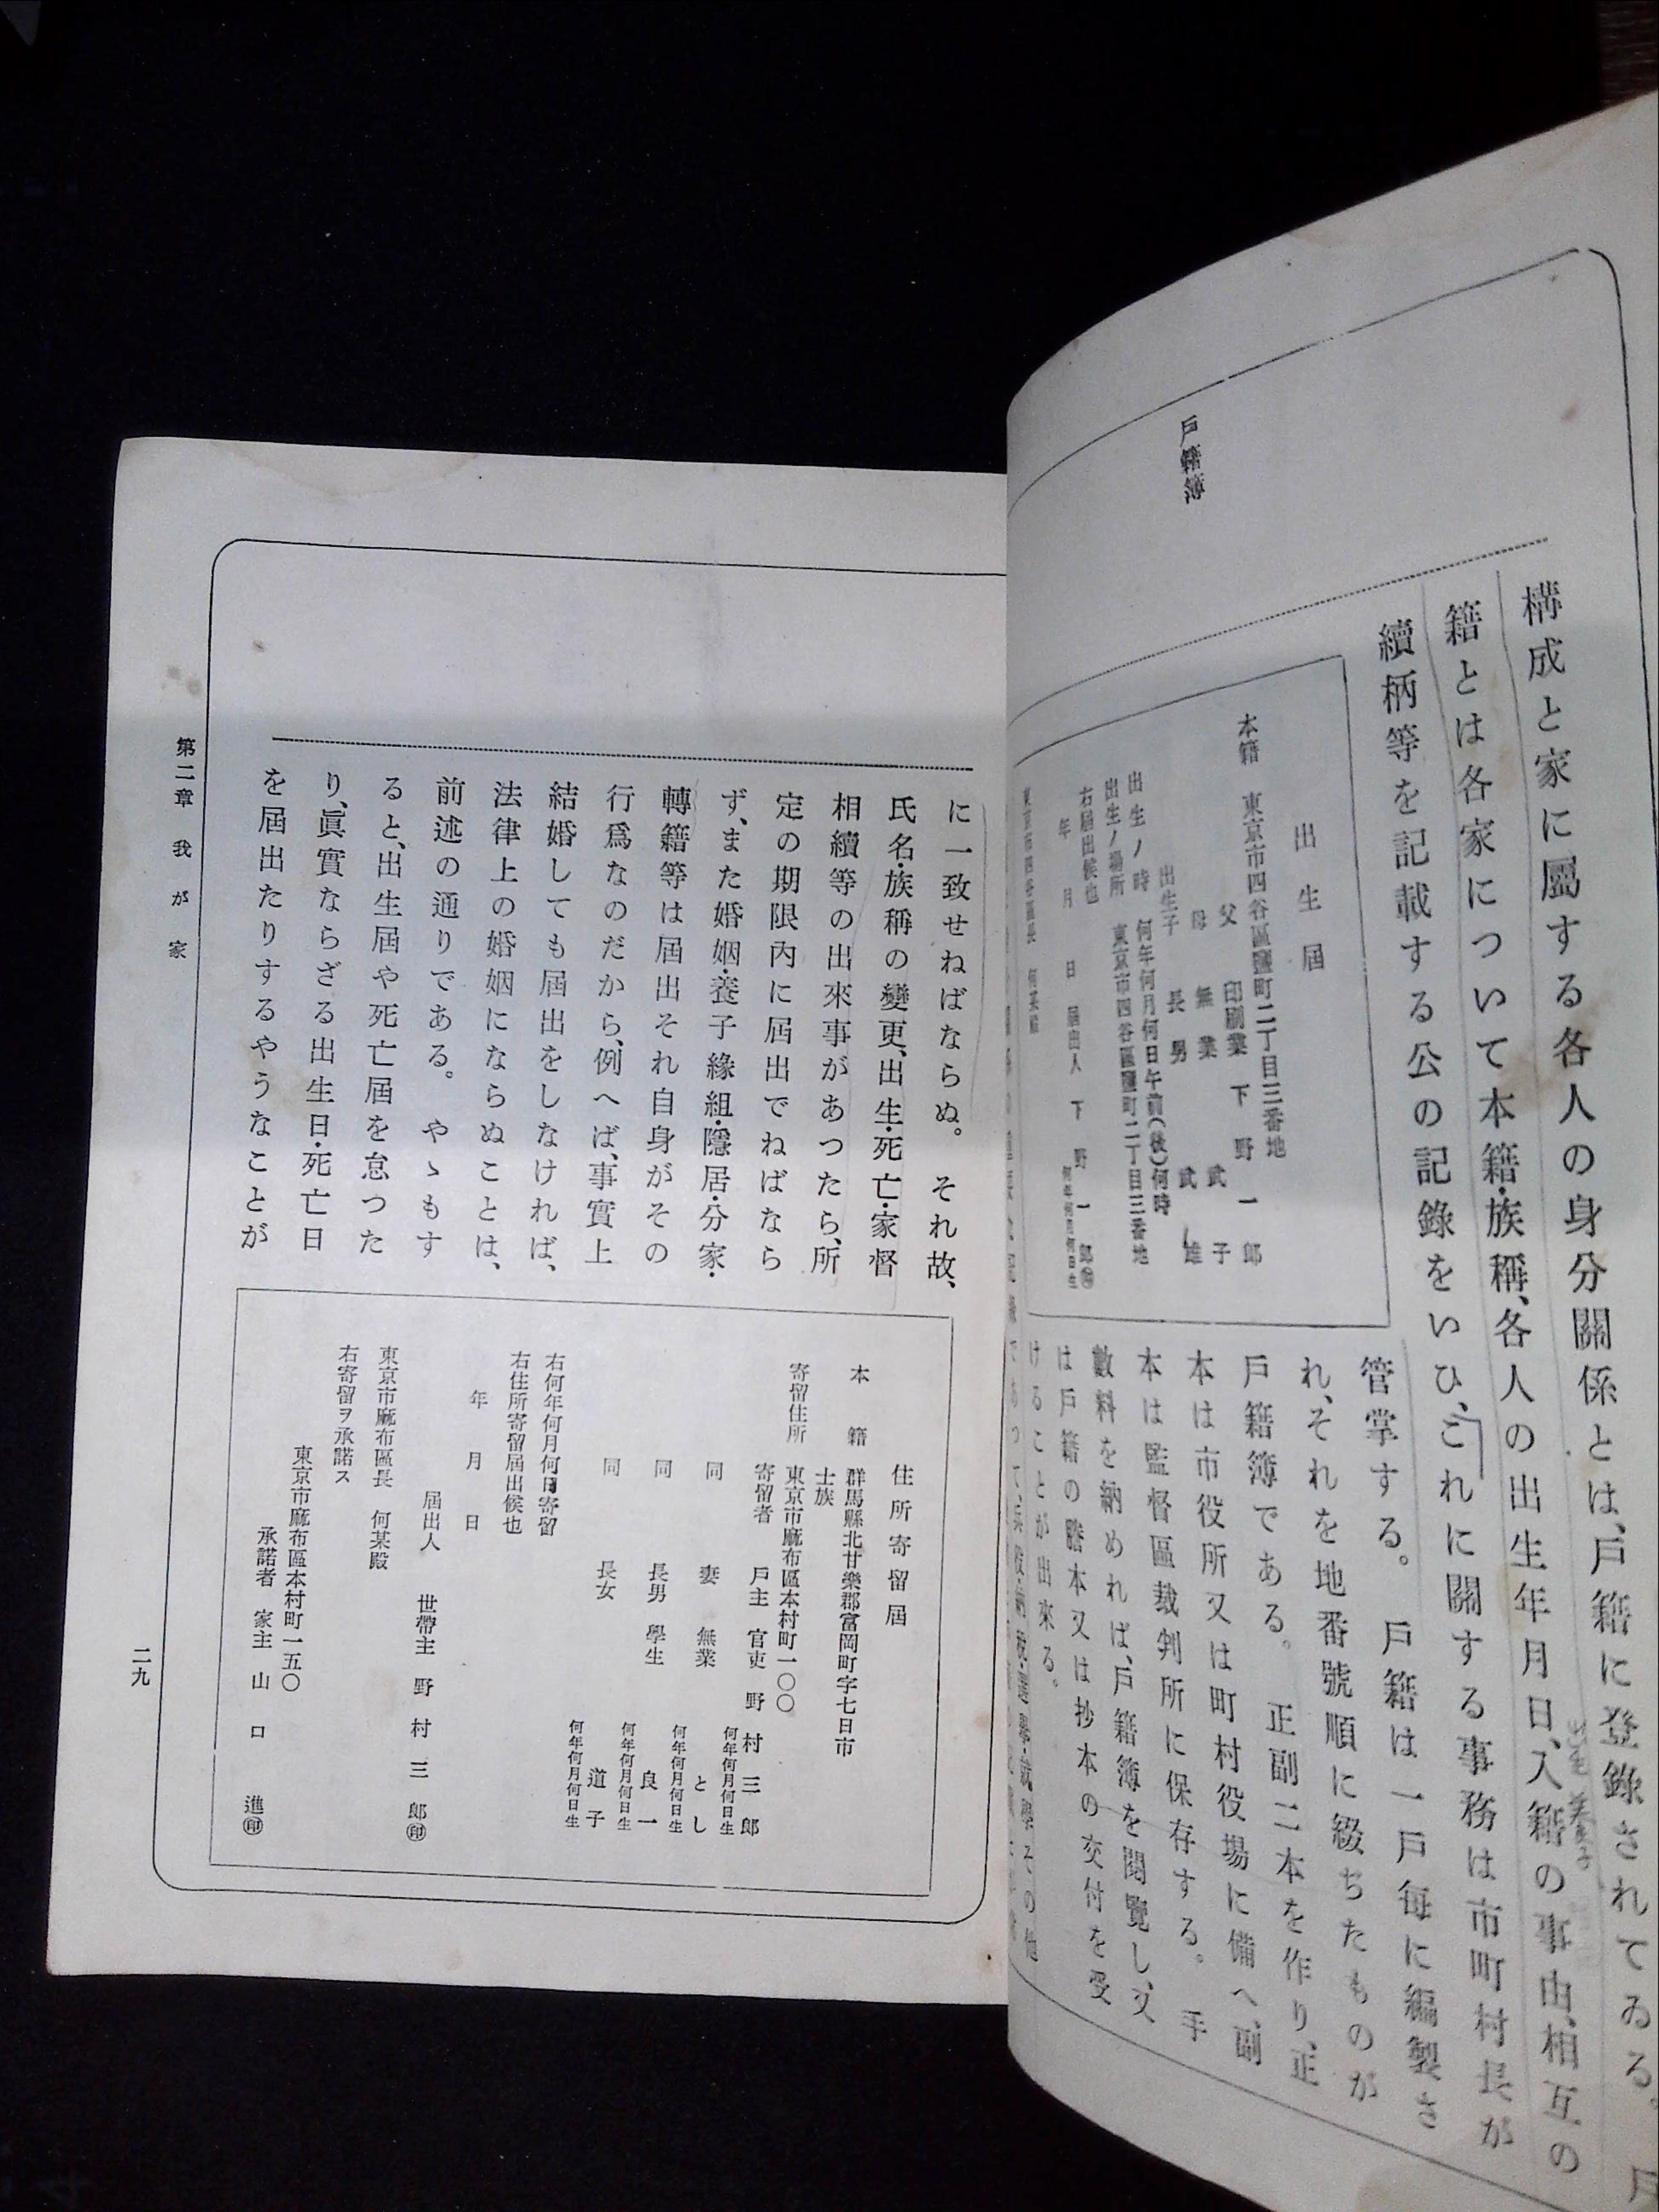 戸籍簿
構成と家に屬する各人の身分關係とは、戸籍に登錄されてゐる。戸
籍とは各家について本籍・族稱、各人の出生年月日、入籍の事由、相互の
續柄等を記載する公の記錄をいひ、これに關する事務は市町村長が
管掌する。戸籍は一戸每に編製さ
れ、それを地番號順に綴ぢたものが
戸籍簿である。正副二本を作り、正
本は市役所又は町村役場に備へ、副
本は監督區裁判所に保存する。手
數料を納めれば、戸籍簿を閱覽し、又
は戸籍の謄本又は抄本の交付を受
けることが出來る。
出生屆
本籍 東京市四谷區鹽町二丁目三番地
父 印刷業 下野一郎
母 無業 武子
出生子 長男 武雄
出生ノ時 何年何月何日午前(後)何時
出生ノ場所 東京市四谷區鹽町二丁目三番地
右屆出候也
年月日 屆出人 下野一郎㊞
何年何月何日生
東京市四谷區長 何某殿
に一致せねばならぬ。それ故、
氏名・族稱の變更、出生・死亡・家督
相續等の出來事があつたら、所
定の期限內に屆出でねばなら
ず、また婚姻・養子緣組・隱居・分家・
轉籍等は屆出それ自身がその
行爲なのだから、例へば、事實上
結婚しても屆出をしなければ、
法律上の婚姻にならぬことは、
前述の通りである。やゝもす
ると、出生屆や死亡屆を怠つた
り、眞實ならざる出生日・死亡日
を屆出たりするやうなことが
住所寄留屆
本籍 群馬縣北甘樂郡富岡町字七日市
士族
寄留住所 東京市麻布區本村町一〇〇
寄留者 戸主 官吏 野村三郎
何年何月何日生
同 妻 無業 とし
何年何月何日生
同 長男 學生 良一
何年何月何日生
同 長女 道子
何年何月何日生
右何年何月何日寄留
右住所寄留屆出候也
年月日
屆出人 世帶主 野村三郎㊞
東京市麻布區長 何某殿
右寄留ヲ承諾ス
東京市麻布區本村町一五〇
承諾者 家主 山口進㊞
第二章 我が家
二九